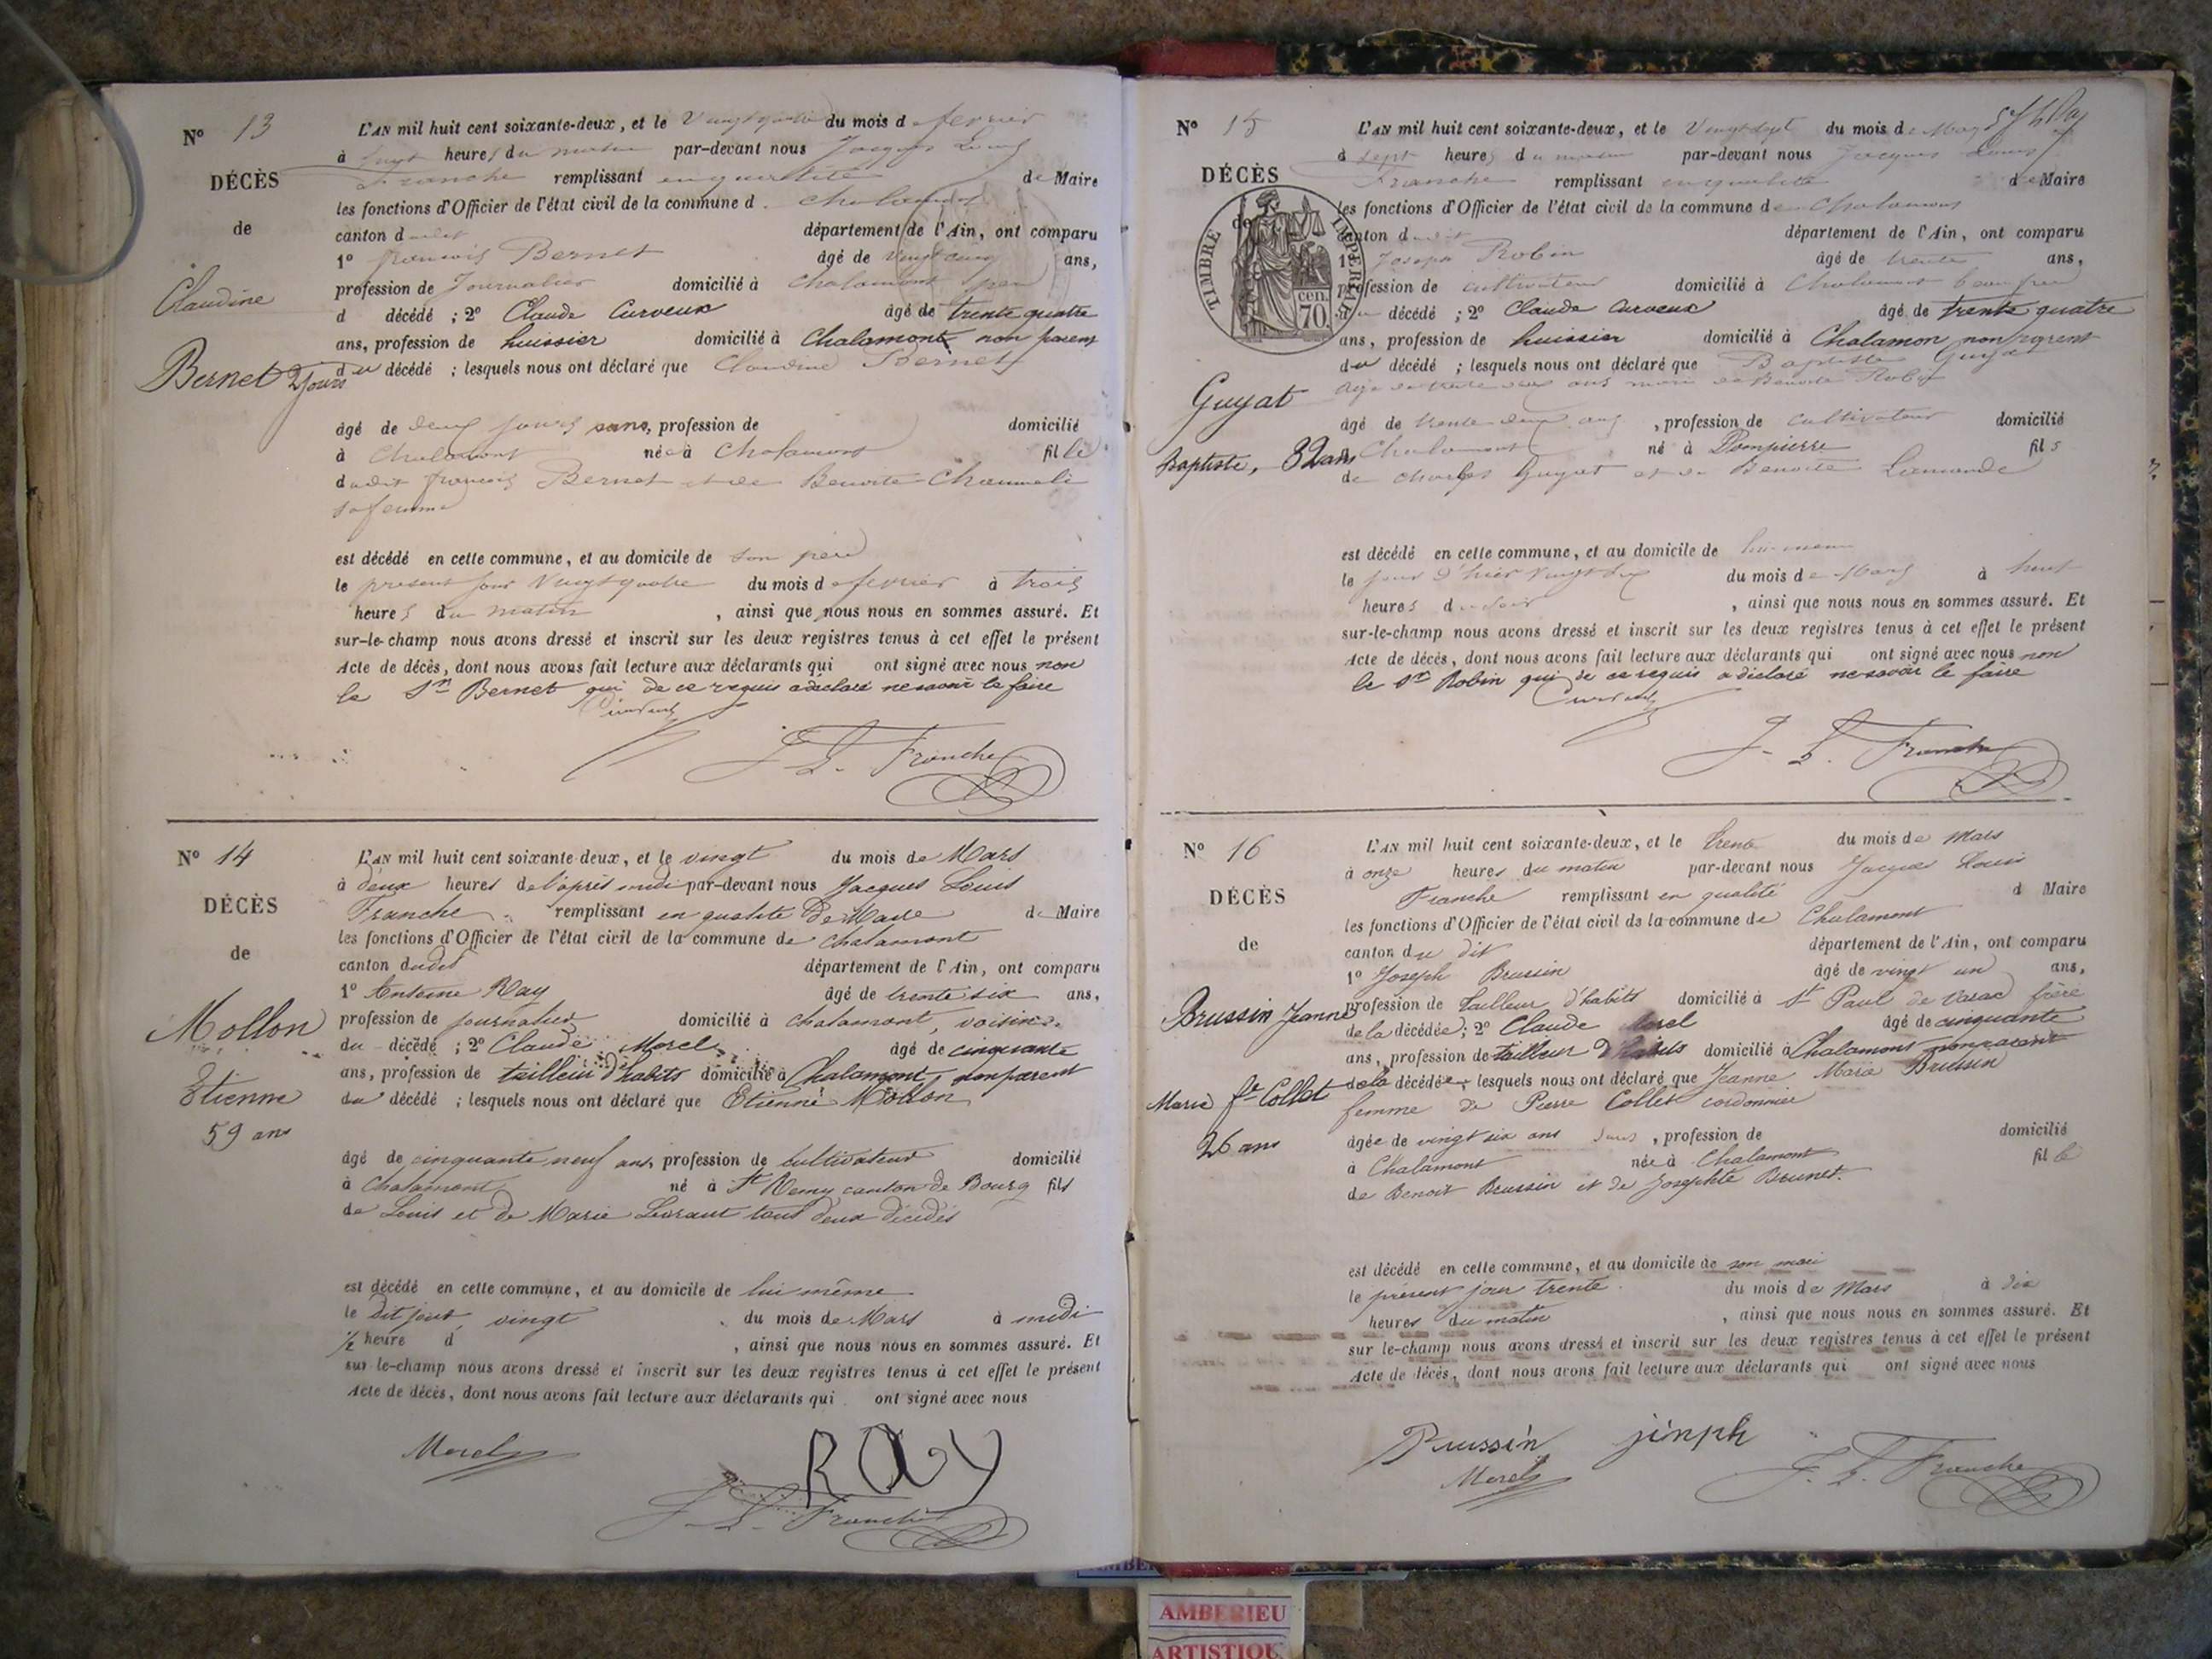 N° 13
L'AN mil huit cent soixante-deux, et le Vingt quatre du mois de fevrier
à heures du matin par-devant nous Jacques Louis
DÉCÈS
Franche remplissant en qualité de Maire
les fonctions d'Officier de l'état civil de la commune d Chalamont
de
canton dudit département de l'Ain, ont comparu
1° francois Bernet âgé de vingt cinq ans,
Claudine
profession de Journalier domicilié à Chalamont pere
d décédé ; 2° Claude Curveux âgé de trente quatre
ans, profession de huissier domicilié à Chalamont non parent
Bernet 2 jours
du décédé ; lesquels nous ont déclaré que Claudine Bernet
âgé de deux jours sans, profession de domicilié
à Chalamont née à Chalamont fille
dudit francois Bernet et de Benoite
sa femme
est décédé en cette commune, et au domicile de son père
le present jour Vingt quatre du mois de fevrier à trois
heures du matin , ainsi que nous nous en sommes assuré. Et
sur-le-champ nous avons dressé et inscrit sur les deux registres tenus à cet effet le présent
Acte de décès, dont nous avons fait lecture aux déclarants qui ont signé avec nous non
le Sr Bernet qui de ce requis a déclaré ne savoir le faire
J. L. Franche
N° 14
L'AN mil huit cent soixante-deux, et le vingt du mois de Mars
à deux heures de l'après midi par-devant nous Jacques Louis
DÉCÈS
Franche remplissant en qualité de Maire de Maire
les fonctions d'Officier de l'état civil de la commune de Chalamont
de
canton dudit département de l'Ain, ont comparu
1° Antoine Ray âgé de trente six ans,
Mollon
profession de journalier domicilié à chalamont, voisin
du décédé ; 2° Claude Morel âgé de cinquante
ans, profession de tailleur d'habits domicilié à Chalamont, non parent
Etienne
du décédé ; lesquels nous ont déclaré que Etienne Mollon
59 ans
âgé de cinquante neuf ans, profession de cultivateur domicilié
à Chalamont né à St Remy canton de Bourg fils
de Louis et de Marie tous deux décédés
est décédé en cette commune, et au domicile de lui même
le dit jour vingt du mois de Mars à midi
1/2 heure d , ainsi que nous nous en sommes assuré. Et
sur le-champ nous avons dressé et inscrit sur les deux registres tenus à cet effet le présent
Acte de décès, dont nous avons fait lecture aux déclarants qui ont signé avec nous
Morel RAY
J. L. Franche
N° 15
L'AN mil huit cent soixante-deux, et le Vingt sept du mois de Mars
à sept heures du matin par-devant nous Jacques Louis
DÉCÈS
Franche remplissant en qualité de Maire
les fonctions d'Officier de l'état civil de la commune de Chalamont
de
canton dudit département de l'Ain, ont comparu
TIMBRE IMPÉRIAL
cen. 70.
1° Joseph Robin âgé de trente ans,
profession de cultivateur domicilié à Chalamont beau frere
du décédé ; 2° Claude Curveux âgé de trente quatre
ans, profession de huissier domicilié à Chalamon non parent
du décédé ; lesquels nous ont déclaré que Baptiste Guyat
Guyat
âgé de trente deux ans mari de Benoite Robin
âgé de trente deux ans, profession de cultivateur domicilié
Baptiste, 32 ans
à Chalamont né à Dompierre fils
de charles Guyat et de Benoite
est décédé en cette commune, et au domicile de lui-même
le jour d'hier vingt six du mois de Mars à
heures du soir , ainsi que nous nous en sommes assuré. Et
sur-le-champ nous avons dressé et inscrit sur les deux registres tenus à cet effet le présent
Acte de décès, dont nous avons fait lecture aux déclarants qui ont signé avec nous non
le Sr Robin qui de ce requis a déclaré ne savoir le faire
J. L. Franche
N° 16
L'AN mil huit cent soixante-deux, et le trente du mois de Mars
à onze heures du matin par-devant nous Jacques Louis
DÉCÈS
Franche remplissant en qualité d Maire
les fonctions d'Officier de l'état civil de la commune de Chalamont
de
canton du dit département de l'Ain, ont comparu
1° Joseph Brussin âgé de vingt un ans,
Brussin Jeanne
profession de tailleur d'habits domicilié à St Paul de Varax frère
de la décédée ; 2° Claude Morel âgé de cinquante
ans, profession de tailleur d'habits domicilié à Chalamont non parent
de la décédée ; lesquels nous ont déclaré que Jeanne Marie Brussin
Marie fe Collet
femme de Pierre Collet cordonnier
26 ans
âgée de vingt six ans sans , profession de domicilié
à Chalamont née à Chalamont fille
de Benoit Brussin et de Josephte Brunet.
est décédé en cette commune, et au domicile de son mari
le présent jour trente du mois de Mars à dix
heures du matin , ainsi que nous nous en sommes assuré. Et
sur le-champ nous avons dressé et inscrit sur les deux registres tenus à cet effet le présent
Acte de décès, dont nous avons fait lecture aux déclarants qui ont signé avec nous
Morel
J. L. Franche
AMBERIEU
ARTISTIQU